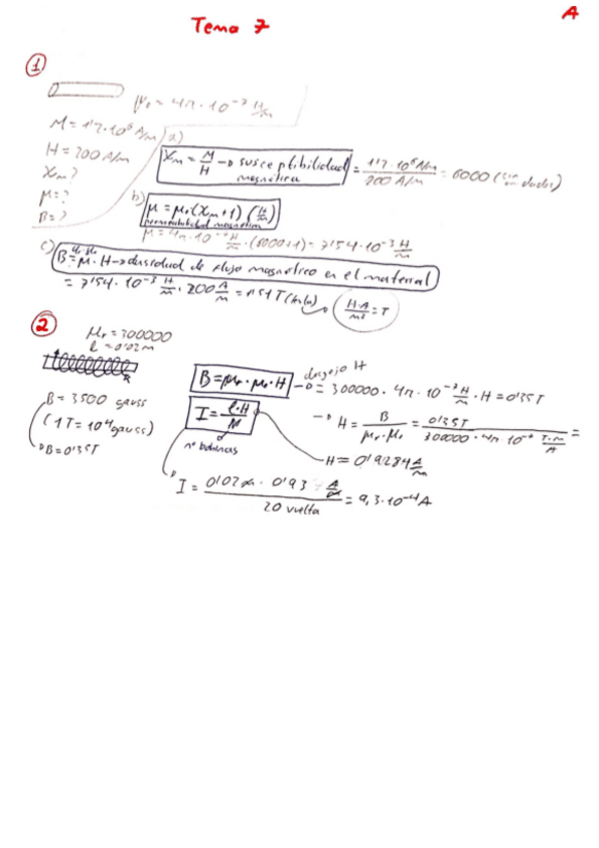 A
Tema 7
1
μ₀ = 4π·10⁻⁷ H/m
M = 1'2·10⁶ A/m
H = 200 A/m
Xm?
μ=?
B=?
a) Xm = M/H → susceptibilidad magnética = 1'2·10⁶ A/m / 200 A/m = 6000 (sin unidades)
b) μ = μ₀(Xm+1) (H/m)
permeabilidad magnética
μ = 4π·10⁻⁷ H/m · (6000+1) = 7'54·10⁻³ H/m
c) B = μ·H → densidad de flujo magnético en el material
= 7'54·10⁻³ H/m · 200 A/m = 1'51 T (tesla) → H·A/m² = T
2
μr = 300000
l = 0'02 m
B = 3500 gauss
(1T = 10⁴ gauss)
→ B = 0'35T
B = μr·μ₀·H
despejo H
→ = 300000 · 4π·10⁻⁷ H/m · H = 0'35T
I = l·H/N
nº bobinas
→ H = B/μr·μ₀ = 0'35T / 300000·4π·10⁻⁷ T·m/A =
H = 0'9284 A/m
I = 0'02 m · 0'93 A/m / 20 vuelta = 9,3·10⁻⁴ A